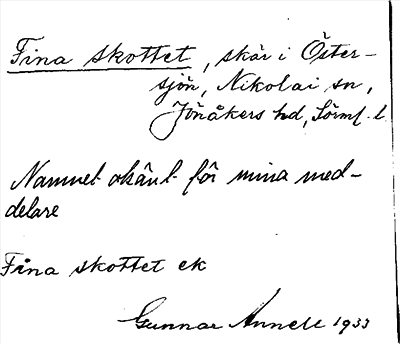 Fina skottet, skär i Öster-
sjön, Nikolai sn,
Jönåkers hd, Sörml. l.
Namnet okänt för mina med-
delare
Fina skottet ek
Gunnar Annell 1933